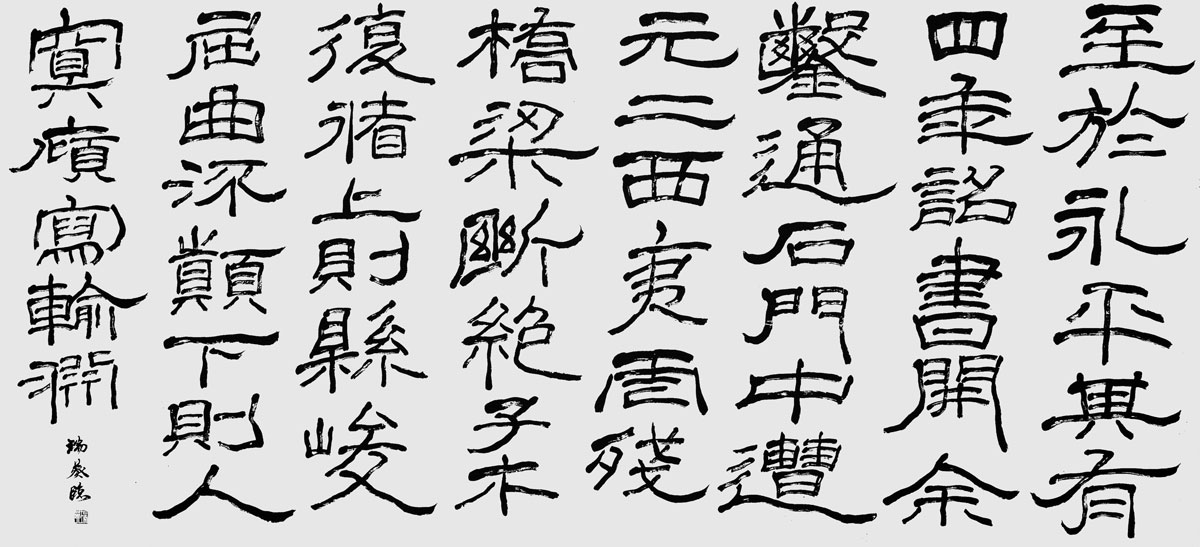 至於永平其有
四年詔書開余
鑿通石門中遭
元二西夷虐殘
橋梁斷絕子午
復循上則縣峻
屈曲流顛下則入
冥廎寫輸淵
瑞臨